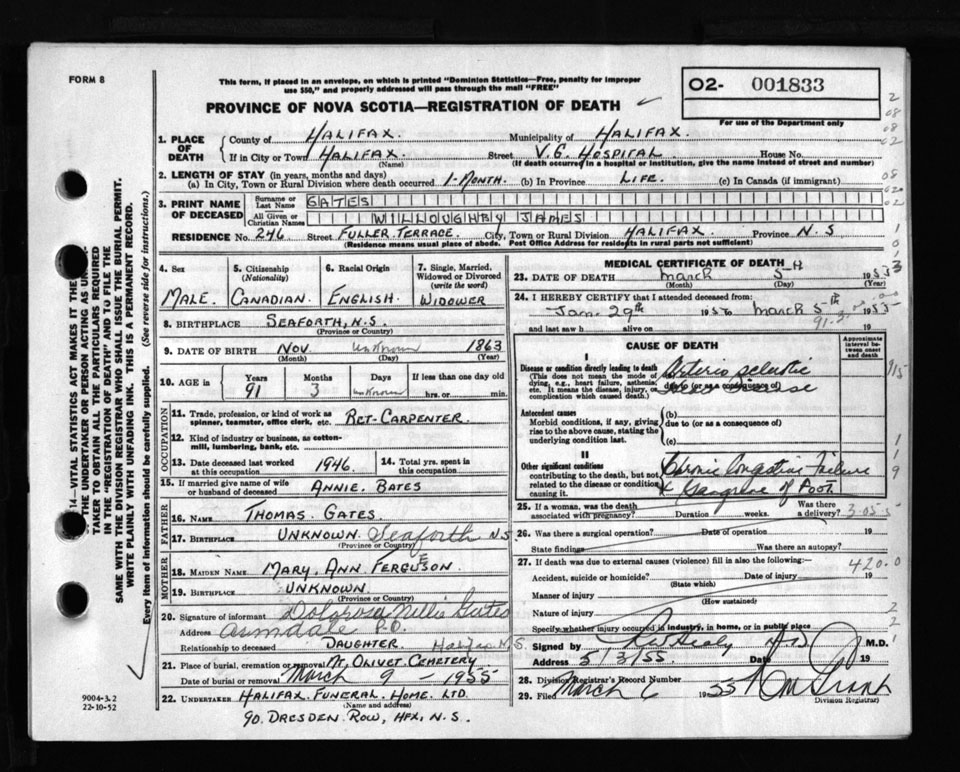 FORM 8
This form, if placed in an envelope, on which is printed "Dominion Statistics—Free, penalty for improper
use $50," and properly addressed will pass through the mail "FREE"
PROVINCE OF NOVA SCOTIA—REGISTRATION OF DEATH
02- 001833
For use of the Department only
1. PLACE OF DEATH
County of HALIFAX. Municipality of HALIFAX.
If in City or Town HALIFAX. Street V.G. HOSPITAL House No.
(Name) (If death occurred in a hospital or institution, give the name instead of street and number)
2. LENGTH OF STAY (in years, months and days)
(a) In City, Town or Rural Division where death occurred 1-MONTH. (b) In Province LIFE. (c) In Canada (if immigrant)
3. PRINT NAME OF DECEASED
Surname or Last Name GATES
All Given or Christian Names WILLOUGHBY JAMES
RESIDENCE No. 246 Street FULLER TERRACE. City, Town or Rural Division HALIFAX. Province N.S
(Residence means usual place of abode. Post Office Address for residents in rural parts not sufficient)
4. Sex MALE.
5. Citizenship (Nationality) CANADIAN.
6. Racial Origin ENGLISH.
7. Single, Married, Widowed or Divorced (write the word) WIDOWER
8. BIRTHPLACE SEAFORTH, N.S.
(Province or Country)
9. DATE OF BIRTH NOV. unknown 1863
(Month) (Day) (Year)
10. AGE IN Years 91 Months 3 Days unknown If less than one day old hrs. or min.
OCCUPATION
11. Trade, profession, or kind of work as spinner, teamster, office clerk, etc. RET-CARPENTER
12. Kind of industry or business, as cotton-mill, lumbering, bank, etc.
13. Date deceased last worked at this occupation 1946.
14. Total yrs. spent in this occupation
15. If married give name of wife or husband of deceased ANNIE. BATES
FATHER
16. NAME THOMAS. GATES.
17. BIRTHPLACE UNKNOWN. Seaforth N.S
(Province or Country)
MOTHER
18. MAIDEN NAME MARY, ANN. FERGUSON.
19. BIRTHPLACE UNKNOWN
(Province or Country)
20. Signature of informant Dolorosa Nellie Gates
Address Armdale P.O.
Relationship to deceased DAUGHTER. Halifax N.S.
21. Place of burial, cremation or removal MT. OLIVET. CEMETERY
Date of burial or removal MARCH 9 - 1955
22. UNDERTAKER HALIFAX. FUNERAL. HOME. LTD.
(Name and address)
90. DRESDEN. ROW, HFX, N.S.
9004-3.2
22-10-52
MEDICAL CERTIFICATE OF DEATH
23. DATE OF DEATH March 5 1955
(Month) (Day) (Year)
24. I HEREBY CERTIFY that I attended deceased from:
Jan. 29th 1955 to March 5th 1955
and last saw h alive on 19
CAUSE OF DEATH
Approximate interval between onset and death
I
Disease or condition directly leading to death
(This does not mean the mode of dying, e.g., heart failure, asthenia, etc. It means the disease, injury, or complication which caused death.)
Arterio sclerotic
due to (or as a consequence of)
Antecedent causes
Morbid conditions, if any, giving rise to the above cause, stating the underlying condition last.
(b)
due to (or as a consequence of)
(c)
II
Other significant conditions
contributing to the death, but not related to the disease or condition causing it.
Chronic Congestive Failure
& Gangrene of Foot.
25. If a woman, was the death associated with pregnancy? Duration weeks. Was there a delivery?
26. Was there a surgical operation? Date of operation 19
State findings Was there an autopsy?
27. If death was due to external causes (violence) fill in also the following:— 420.0
Accident, suicide or homicide? Date of injury 19
(State which)
Manner of injury
(How sustained)
Nature of injury
Specify whether injury occurred in industry, in home, or in public place
Signed by M.D.
Address 5/3/55. Date 19
28. Division Registrar's Record Number
29. Filed March 6 1955
Division Registrar
14—VITAL STATISTICS ACT MAKES IT THE
THE UNDERTAKER OR PERSON ACTING AS
TAKER TO OBTAIN ALL THE PARTICULARS REQUIRED
IN THE "REGISTRATION OF DEATH" AND TO FILE THE
SAME WITH THE DIVISION REGISTRAR WHO SHALL ISSUE THE BURIAL PERMIT.
WRITE PLAINLY WITH UNFADING INK. THIS IS A PERMANENT RECORD.
Every item of information should be carefully supplied. (See reverse side for instructions.)